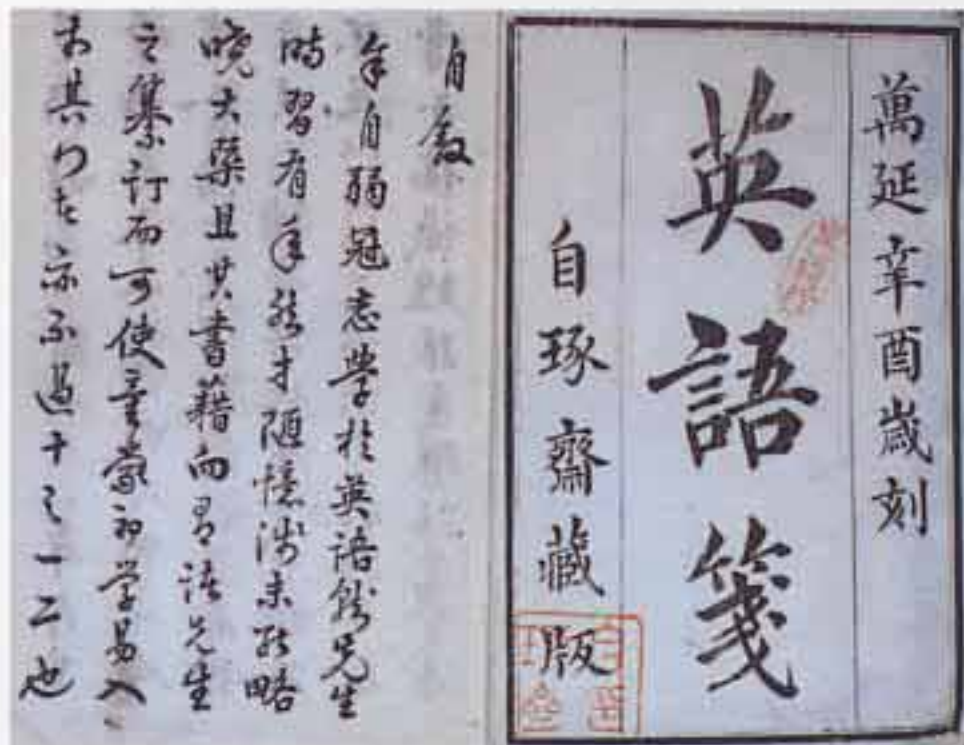 萬延辛酉歲刻
英語箋
自琢齋藏版
自叙
余自弱冠志學於英語從先生
時習有年然才随憶浅未能略
暁大槩且其書藉向有諸先生
之纂訂而可使童蒙初学易入
者其門者亦不過十之一二也